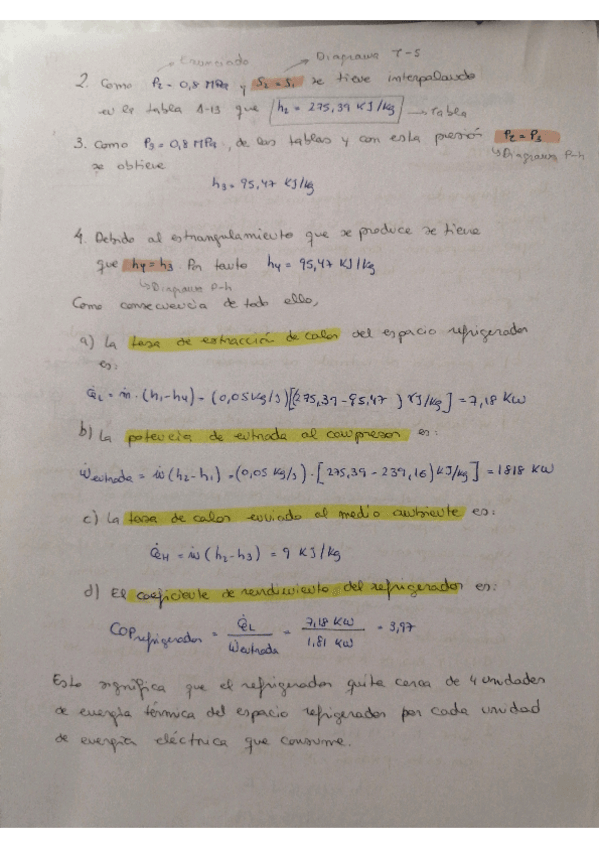 Enunciado Diagrama T-S
2. Como P2 = 0,8 MPa y S2 = S1 se tiene interpolando
en la tabla A-13 que h2 = 275,39 KJ/kg → Tabla
3. Como P3 = 0,8 MPa, de las tablas y con esta presión P2 = P3
se obtiene ↳Diagrama P-h
h3 = 95,47 KJ/kg
4. Debido al estrangulamiento que se produce se tiene
que h4 = h3. Por tanto h4 = 95,47 KJ/kg
↳Diagrama P-h
Como consecuencia de todo ello,
a) La tasa de extracción de calor del espacio refrigerador
es:
Q̇L = ṁ · (h1-h4) = (0,05 kg/s)[(275,39 - 95,47) KJ/kg] = 7,18 KW
b) La potencia de entrada al compresor es:
Ẇentrada = ṁ (h2-h1) = (0,05 kg/s) · [275,39 - 239,16) KJ/kg] = 1818 KW
c) La tasa de calor enviado al medio ambiente es:
Q̇H = ṁ (h2-h3) = 9 KJ/kg
d) El coeficiente de rendimiento del refrigerador es:
COPrefrigerador = Q̇L / Ẇentrada = 7,18 KW / 1,81 KW = 3,97
Esto significa que el refrigerador quita cerca de 4 unidades
de energía térmica del espacio refrigerador por cada unidad
de energía eléctrica que consume.